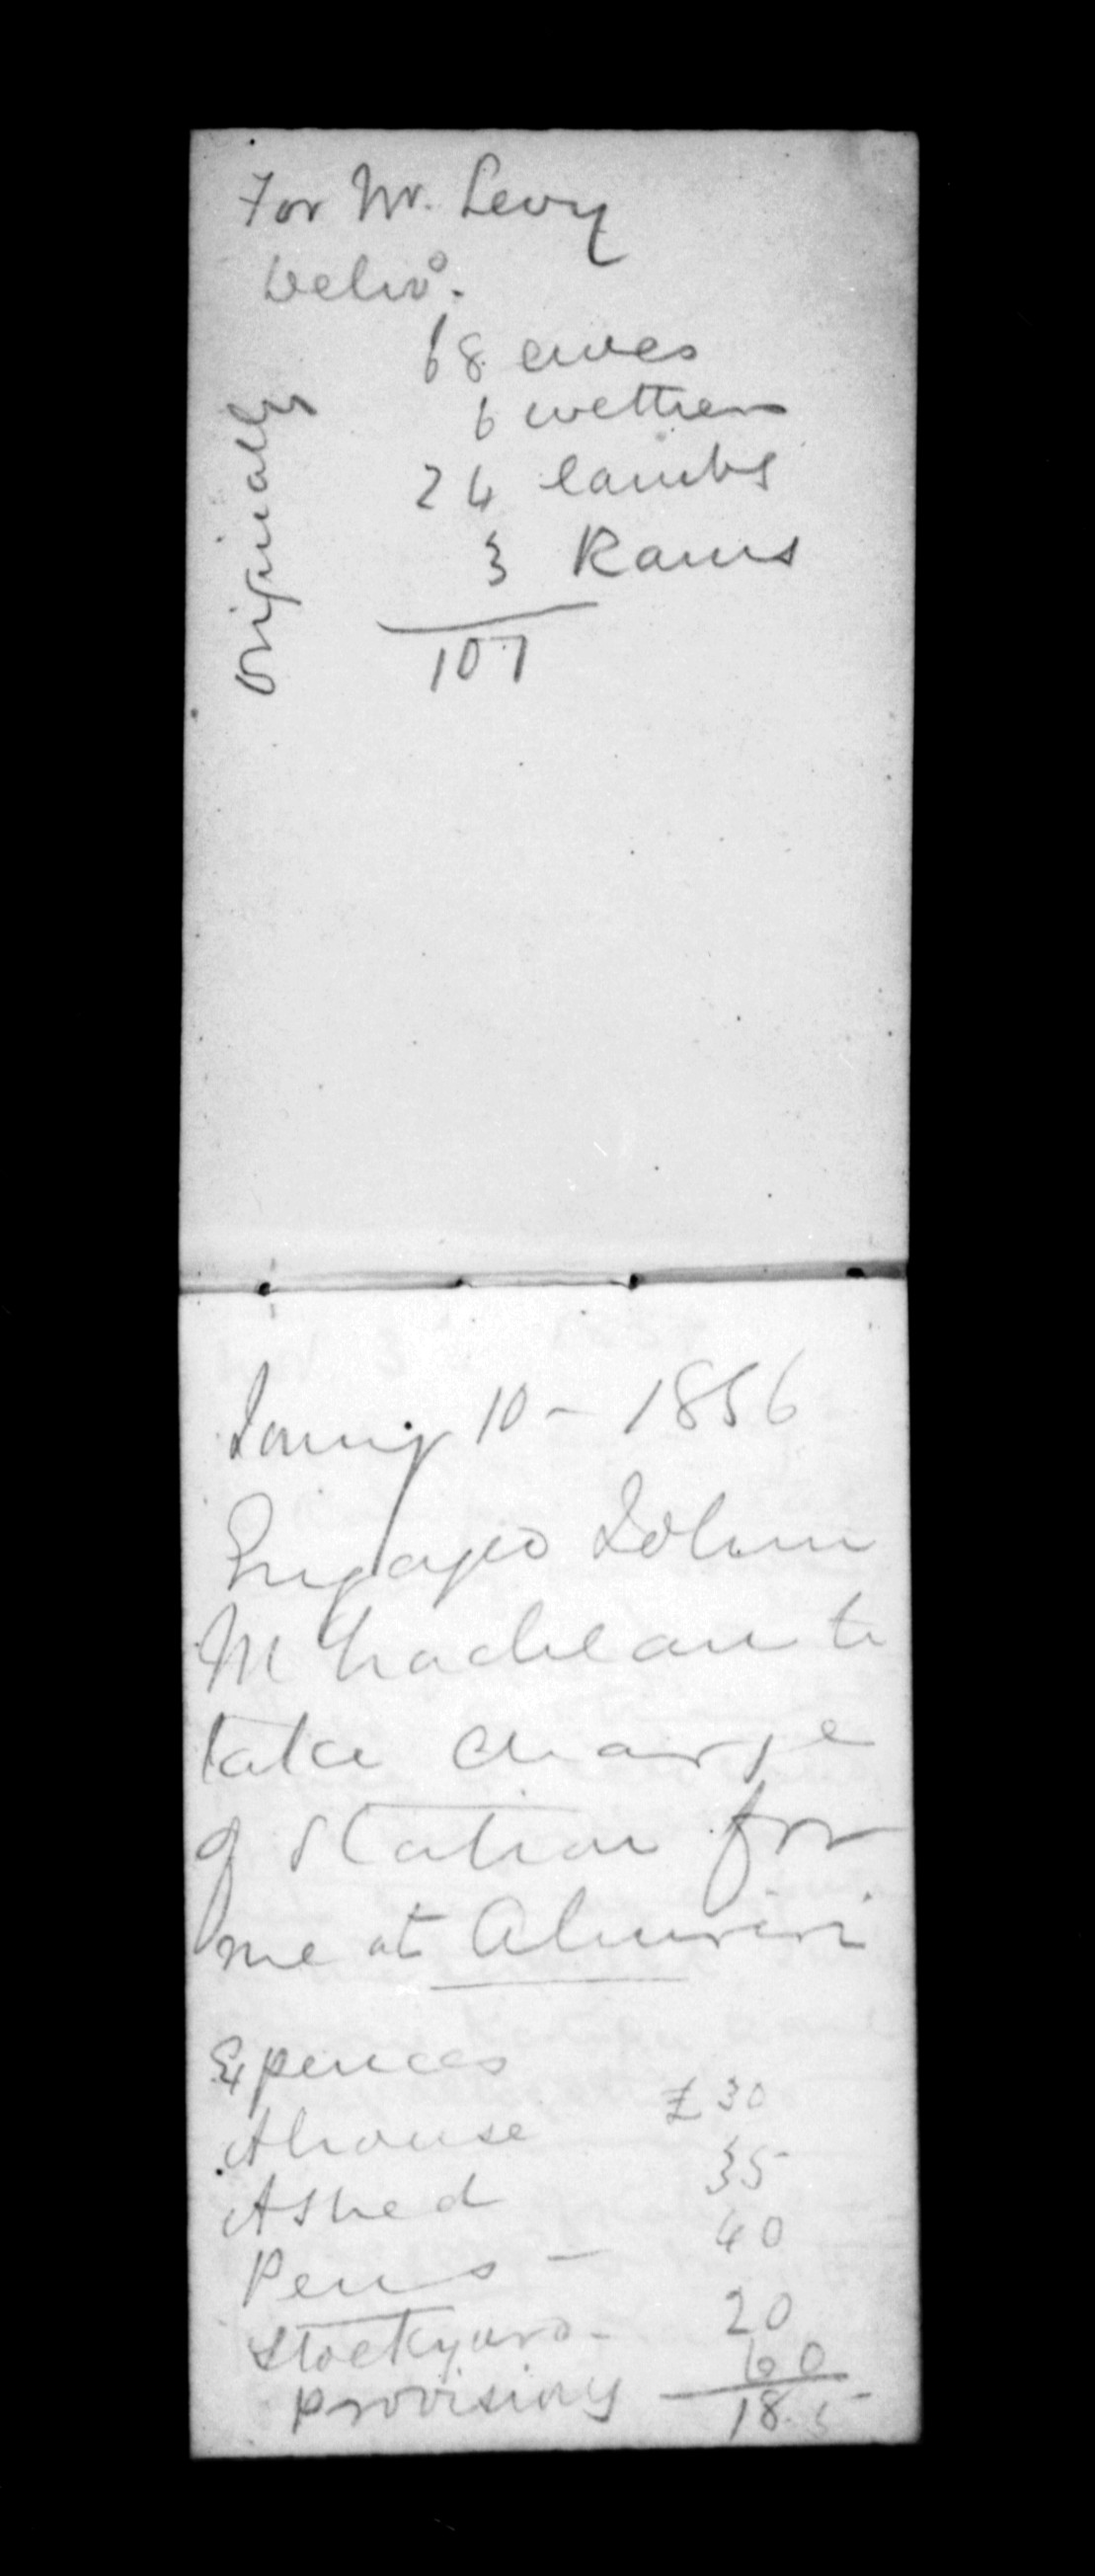 For Mr. Levy
Delivd.
68 ewes
6 wethers
24 lambs
3 Rams
107
Originally
Janny 10 - 1856
Engaged John
McLachlan to
take charge
of Station for
me at Ahuriri
Expences
A house £30
A Shed 35
Pens - 40
Stockyard - 20
Provisions 60
185